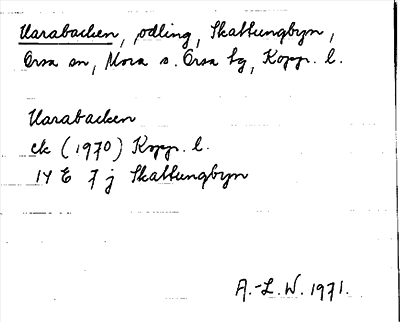 Uarabacken, odling, Skattungbyn,
Orsa sn, Mora o. Orsa tg, Kopp. l.
Uarabacken
ek (1970) Kopp. l.
14 E 7 j Skattungbyn
A.-L. W. 1971.